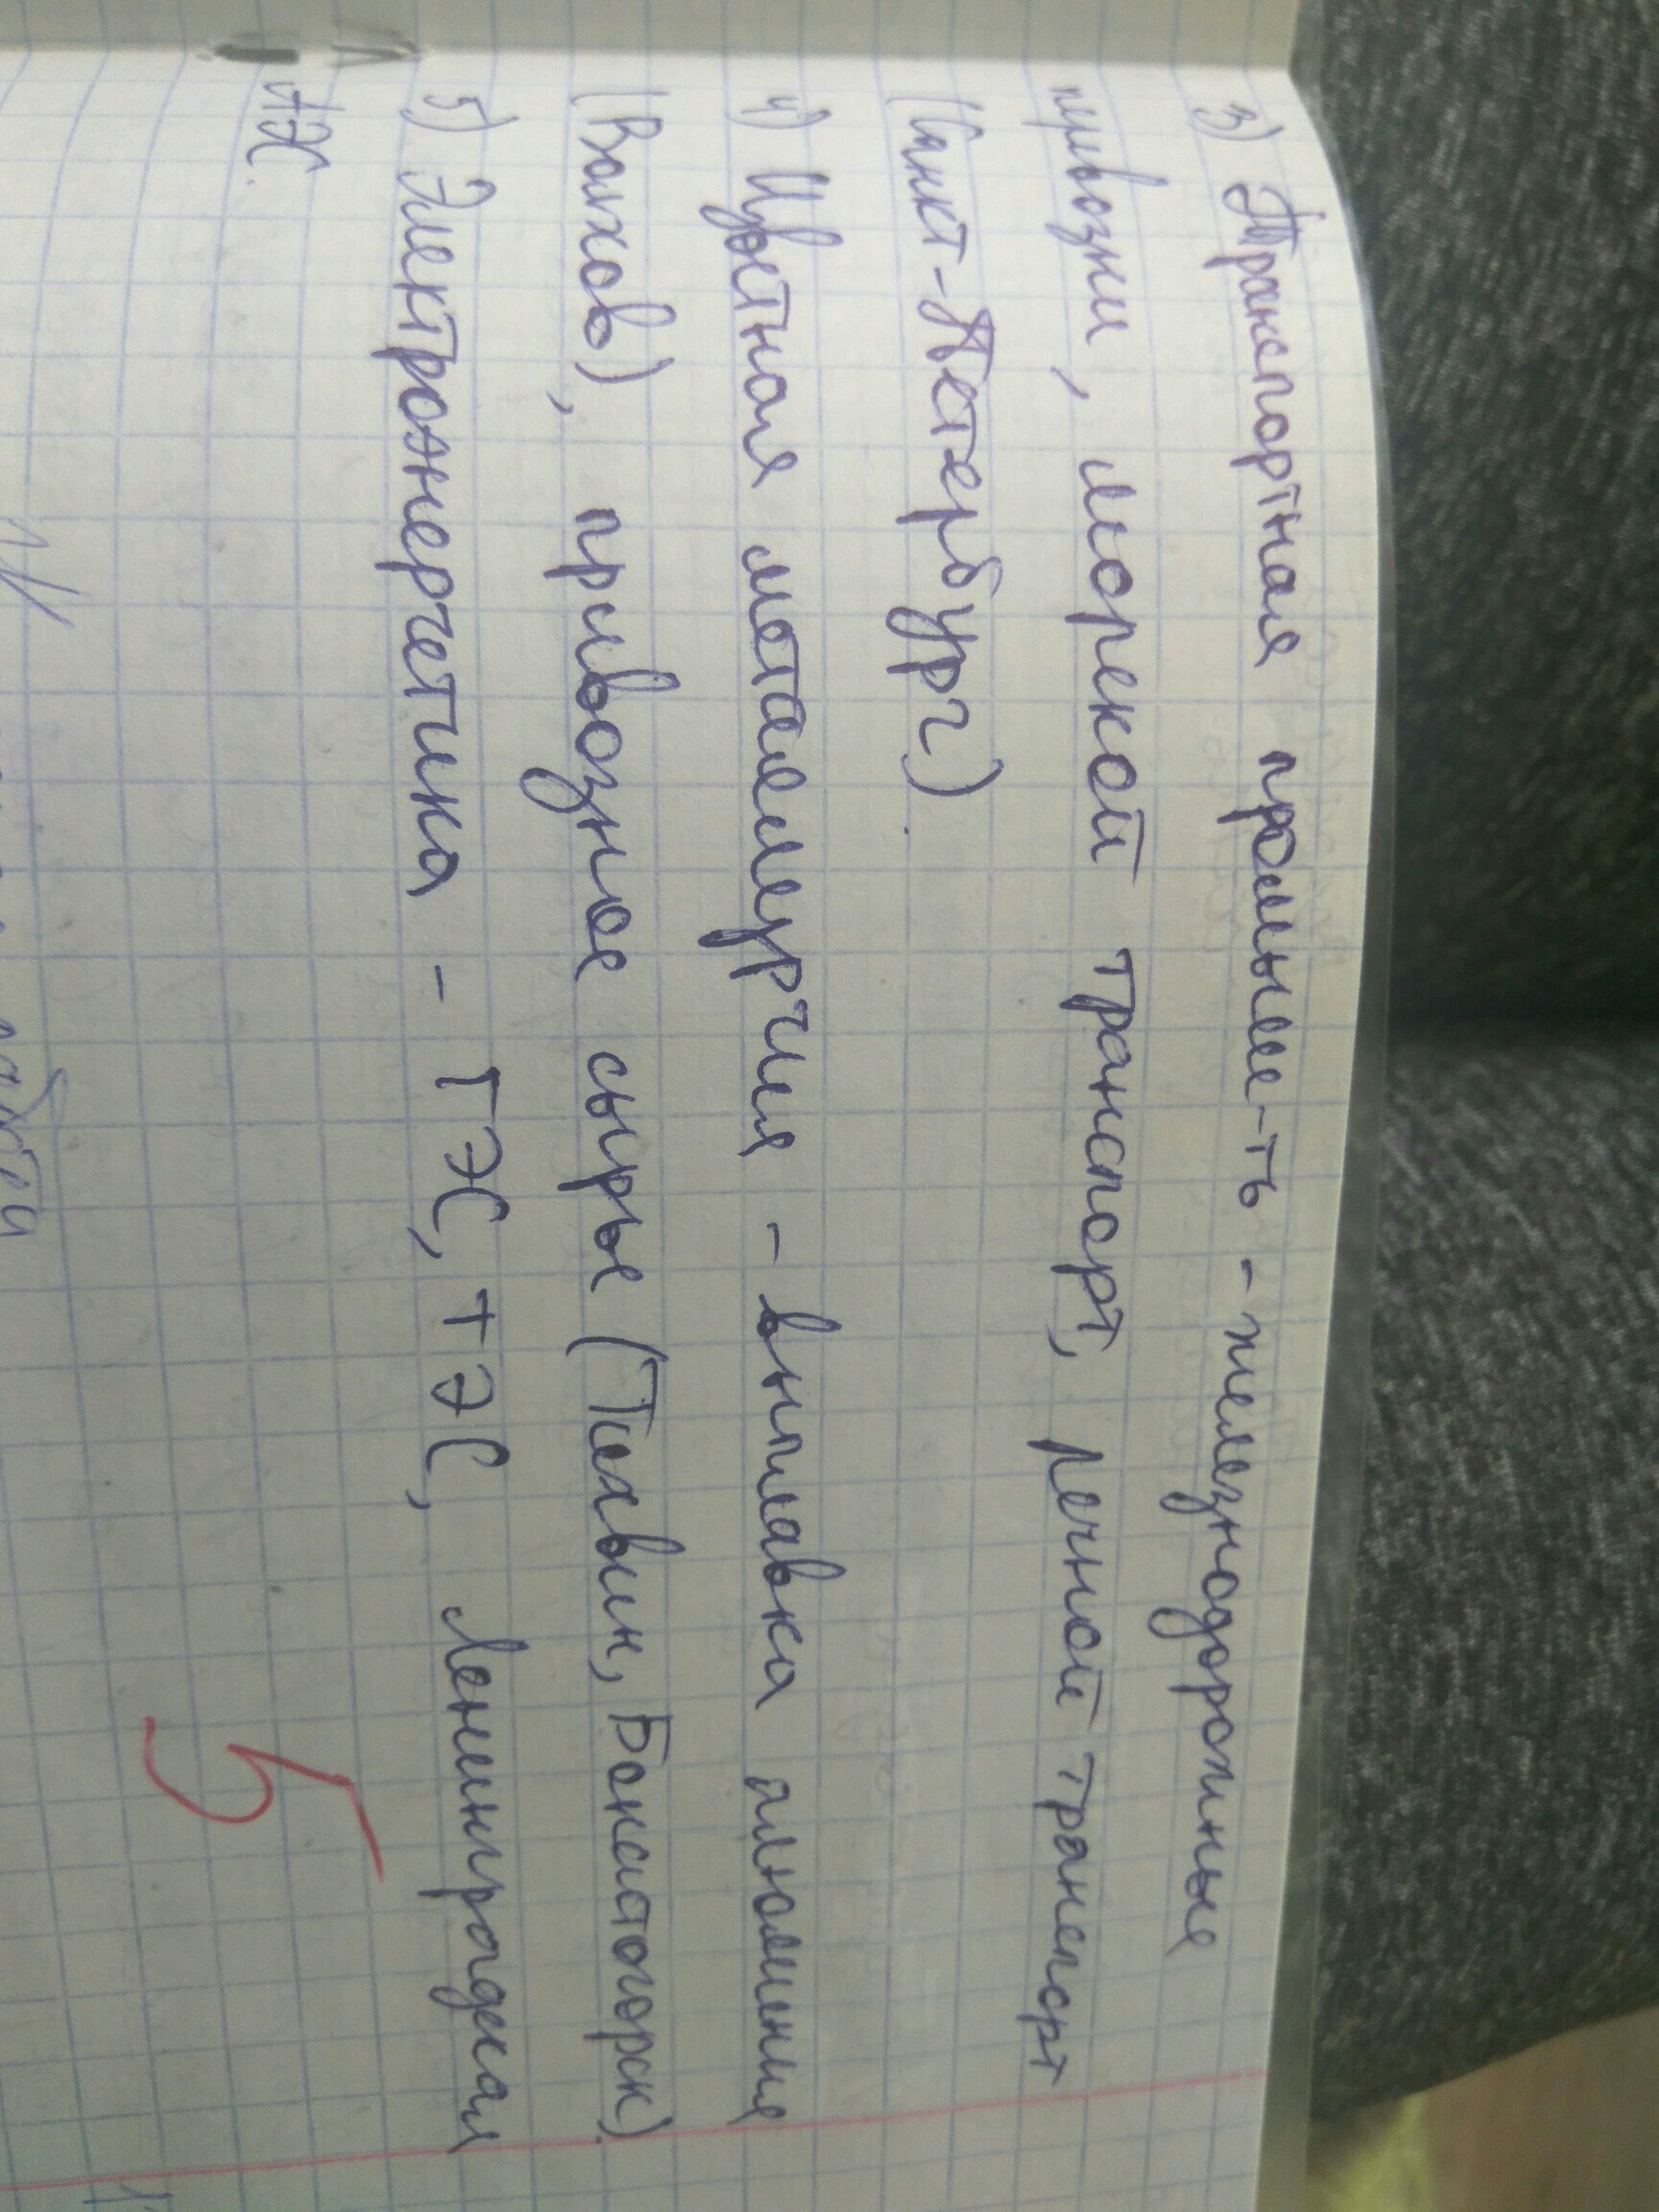 3) Транспортная промышл-ть - железнодорожные
привозки, морской транспорт, речной транспорт
(Санкт-Петербург).
4) Цветная металлургия - выплавка алюминия
(Волхов), привозное сырье (Тихвин, Бокситогорск).
5) Электроэнергетика - ГЭС, ТЭС, Ленинградская
АЭС.
5